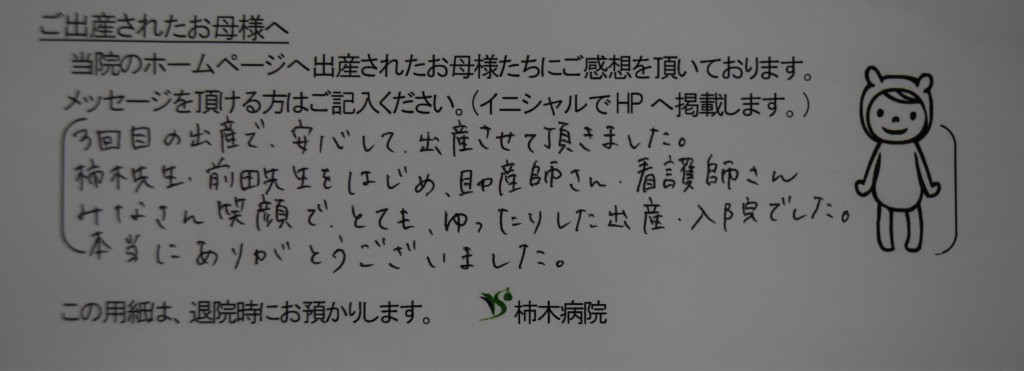 ご出産されたお母様へ
当院のホームページへ出産されたお母様たちにご感想を頂いております。
メッセージを頂ける方はご記入ください。(イニシャルでHPへ掲載します。)
3回目の出産で、安心して、出産させて頂きました。
柿木先生・前田先生をはじめ、助産師さん・看護師さん
みなさん笑顔で、とても、ゆったりした出産・入院でした。
本当にありがとうございました。
この用紙は、退院時にお預かりします。
柿木病院